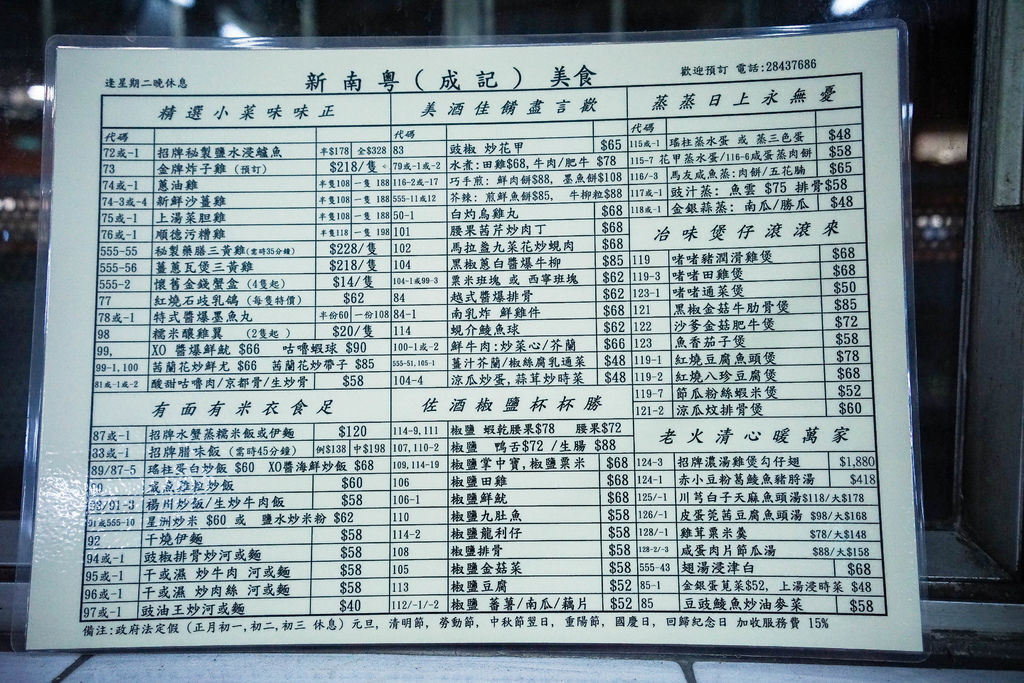 逢星期二晚休息
新南粵(成記)美食
歡迎預訂 電話:28437686
精選小菜味味正
代碼
72或-1 招牌秘製鹽水浸鱸魚 半$178 全$328
73 金牌炸子雞(預訂) $218/隻
74或-1 蔥油雞 半隻108 一隻188
74-3或-4 新鮮沙薑雞 半隻108 一隻188
75或-1 上湯菜胆雞 半隻108 一隻188
76或-1 順德污糟雞 半隻118 一隻198
555-55 秘製藥膳三黃雞(需時35分鐘) $228/隻
555-56 薑蔥瓦煲三黃雞 $218/隻
555-2 懷舊金錢蟹盒(4隻起) $14/隻
77 紅燒石歧乳鴿(每隻特價) $62
78或-1 特式醬爆墨魚丸 半份60 一份108
98 糯米釀雞翼(2隻起) $20/隻
99, XO醬爆鮮魷 $66 咕嚕蝦球 $90
99-1,100 茜蘭花炒鮮尤 $66 茜蘭花炒帶子 $85
81或-1或-2 酸甜咕嚕肉/京都骨/生炒骨 $58
有面有米衣食足
87或-1 招牌水蟹蒸糯米飯或伊麵 $120
33或-1 招牌腊味飯(需時45分鐘) 例$138 中$198
89/87-5 瑤柱蛋白炒飯 $60 XO醬海鮮炒飯 $68
90 咸魚雞粒炒飯 $60
93/91-3 楊州炒飯/生炒牛肉飯 $58
91或555-10 星洲炒米 $60 或 鹽水炒米粉 $62
92 干燒伊麵 $58
94或-1 豉椒排骨炒河或麵 $58
95或-1 干或濕 炒牛肉 河或麵 $58
96或-1 干或濕 炒肉絲 河或麵 $58
97或-1 豉油王炒河或麵 $40
美酒佳餚盡言歡
代碼
83 豉椒 炒花甲 $65
79或-1或-2 水煮:田雞$68,牛肉/肥牛 $78
116-2或-17 巧手煎: 鮮肉餅$88, 墨魚餅$108
555-11或12 芥辣: 煎鮮魚餅$85, 牛柳粒$88
50-1 白灼烏雞丸 $68
101 腰果茜芹炒肉丁 $68
102 馬拉盞九菜花炒蜆肉 $68
104 黑椒蔥白醬爆牛柳 $85
104-1或99-3 粟米班塊 或 西寧班塊 $62
84 越式醬爆排骨 $62
84-1 南乳炸 鮮雞件 $68
114 蜆介鯪魚球 $62
100-1或-2 鮮牛肉:炒菜心/芥蘭 $66
555-51,105-1 薑汁芥蘭/椒絲腐乳通菜 $48
104-4 涼瓜炒蛋,蒜茸炒時菜 $48
佐酒椒鹽杯杯勝
114-9,111 椒鹽 蝦乾腰果$78 腰果$72
107,110-2 椒鹽 鴨舌$72 /生腸 $88
109,114-19 椒鹽掌中寶,椒鹽粟米 $68
106 椒鹽田雞 $68
106-1 椒鹽鮮魷 $68
110 椒鹽九肚魚 $58
114-2 椒鹽龍利仔 $58
108 椒鹽排骨 $58
105 椒鹽金菇菜 $58
113 椒鹽豆腐 $52
112/-1/-2 椒鹽 蕃薯/南瓜/藕片 $52
蒸蒸日上永無憂
代碼
115或-1 瑤柱蒸水蛋 或 蒸三色蛋 $48
115-7 花甲蒸水蛋/116-6咸蛋蒸肉餅 $58
116/-3 馬友咸魚蒸:肉餅/五花腩 $65
117或-1 豉汁蒸: 魚雲 $75 排骨$58
118或-1 金銀蒜蒸: 南瓜/勝瓜 $48
冶味煲仔滾滾來
119 啫啫豬潤滑雞煲 $68
119-3 啫啫田雞煲 $68
123-1 啫啫通菜煲 $50
121 黑椒金菇牛肋骨煲 $85
122 沙爹金菇肥牛煲 $72
123 魚香茄子煲 $58
119-1 紅燒豆腐魚頭煲 $78
119-2 紅燒八珍豆腐煲 $68
119-7 節瓜粉絲蝦米煲 $52
121-2 涼瓜炆排骨煲 $60
老火清心暖萬家
124-3 招牌濃湯雞煲勾仔翅 $1,880
124-1 赤小豆粉葛鯪魚豬𦟌湯 $418
125/-1 川芎白子天麻魚頭湯$118/大$178
126/-1 皮蛋芫茜豆腐魚頭湯 $98/大$168
128/-1 雞茸粟米羹 $78/大$148
128-2/-3 咸蛋肉片節瓜湯 $88/大$158
555-43 翅湯浸津白 $68
85-1 金銀蛋莧菜$52, 上湯浸時菜 $48
85 豆豉鯪魚炒油麥菜 $58
備注:政府法定假(正月初一,初二,初三 休息)元旦, 清明節, 勞動節, 中秋節翌日, 重陽節, 國慶日, 回歸紀念日 加收服務費 15%